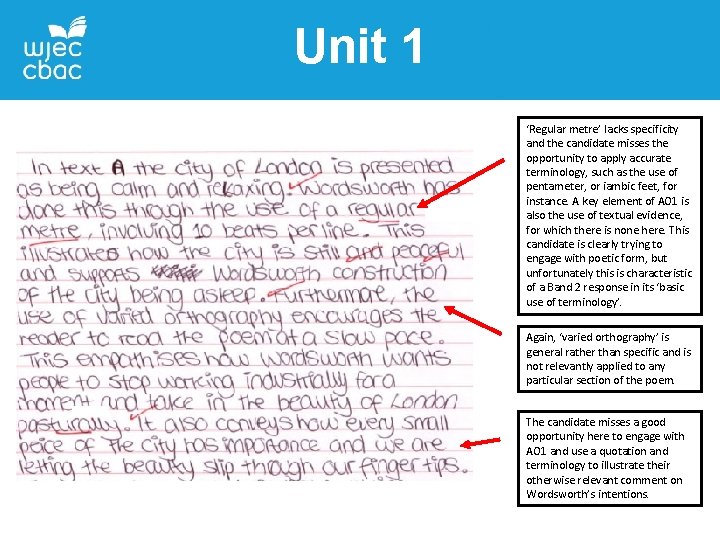 wjec
cbac
Unit 1
In text A the city of London is presented
as being calm and relaxing. Wordsworth has
done this through the use of a regular
metre, involving 10 beats per line. This
illustrates how the city is still and peaceful
and supports Wordsworth construction
of the city being asleep. Furthermore, the
use of varied orthography encourages the
reader to read the poem at a slow pace.
This empathises how Wordsworth wants
people to stop working industrially for a
moment and take in the beauty of London
pasturally. It also conveys how every small
peice of the city has importance and we are
letting the beauty slip through our fingertips.
‘Regular metre’ lacks specificity
and the candidate misses the
opportunity to apply accurate
terminology, such as the use of
pentameter, or iambic feet, for
instance. A key element of AO1 is
also the use of textual evidence,
for which there is none here. This
candidate is clearly trying to
engage with poetic form, but
unfortunately this is characteristic
of a Band 2 response in its ‘basic
use of terminology’.
Again, ‘varied orthography’ is
general rather than specific and is
not relevantly applied to any
particular section of the poem.
The candidate misses a good
opportunity here to engage with
AO1 and use a quotation and
terminology to illustrate their
otherwise relevant comment on
Wordsworth’s intentions.